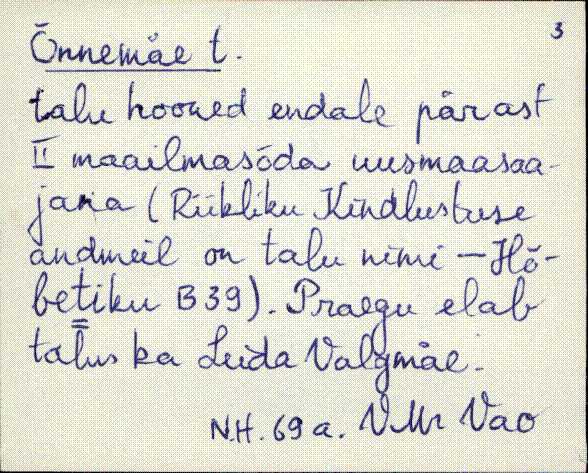 3
Õnnemäe t.
talu hooned endale pärast
II maailmasõda uusmaasaa-
jana (Riikliku Kindlustuse
andmeil on talu nimi – Hõ-
betiku B39). Praegu elab
talus ka Leida Valgmäe.
N.H. 69 a. VMr Vao